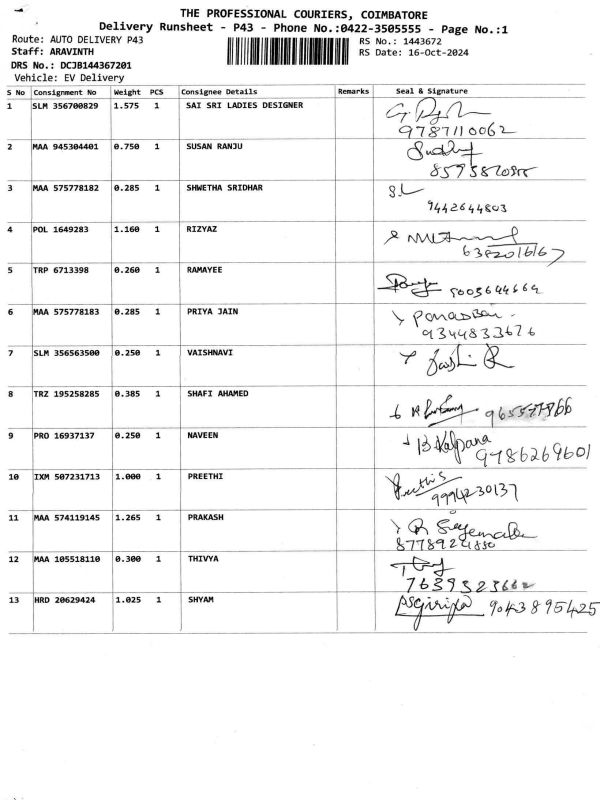 THE PROFESSIONAL COURIERS, COIMBATORE
Delivery Runsheet - P43 - Phone No.:0422-3505555 - Page No.:1
Route: AUTO DELIVERY P43
RS No.: 1443672
Staff: ARAVINTH
RS Date: 16-Oct-2024
DRS No.: DCJB144367201
Vehicle: EV Delivery
S No Consignment No Weight PCS Consignee Details Remarks Seal & Signature
1 SLM 356700829 1.575 1 SAI SRI LADIES DESIGNER
9787110062
2 MAA 945304401 0.750 1 SUSAN RANJU
3 MAA 575778182 0.285 1 SHWETHA SRIDHAR S.L
9442644803
4 POL 1649283 1.160 1 RIZYAZ
5 TRP 6713398 0.260 1 RAMAYEE
6 MAA 575778183 0.285 1 PRIYA JAIN
9344833676
7 SLM 356563500 0.250 1 VAISHNAVI
8 TRZ 195258285 0.385 1 SHAFI AHAMED
9 PRO 16937137 0.250 1 NAVEEN B Kalpana
9786269601
10 IXM 507231713 1.000 1 PREETHI Preethi S
9994230137
11 MAA 574119145 1.265 1 PRAKASH
12 MAA 105518110 0.300 1 THIVYA
7639323662
13 HRD 20629424 1.025 1 SHYAM 9043895425